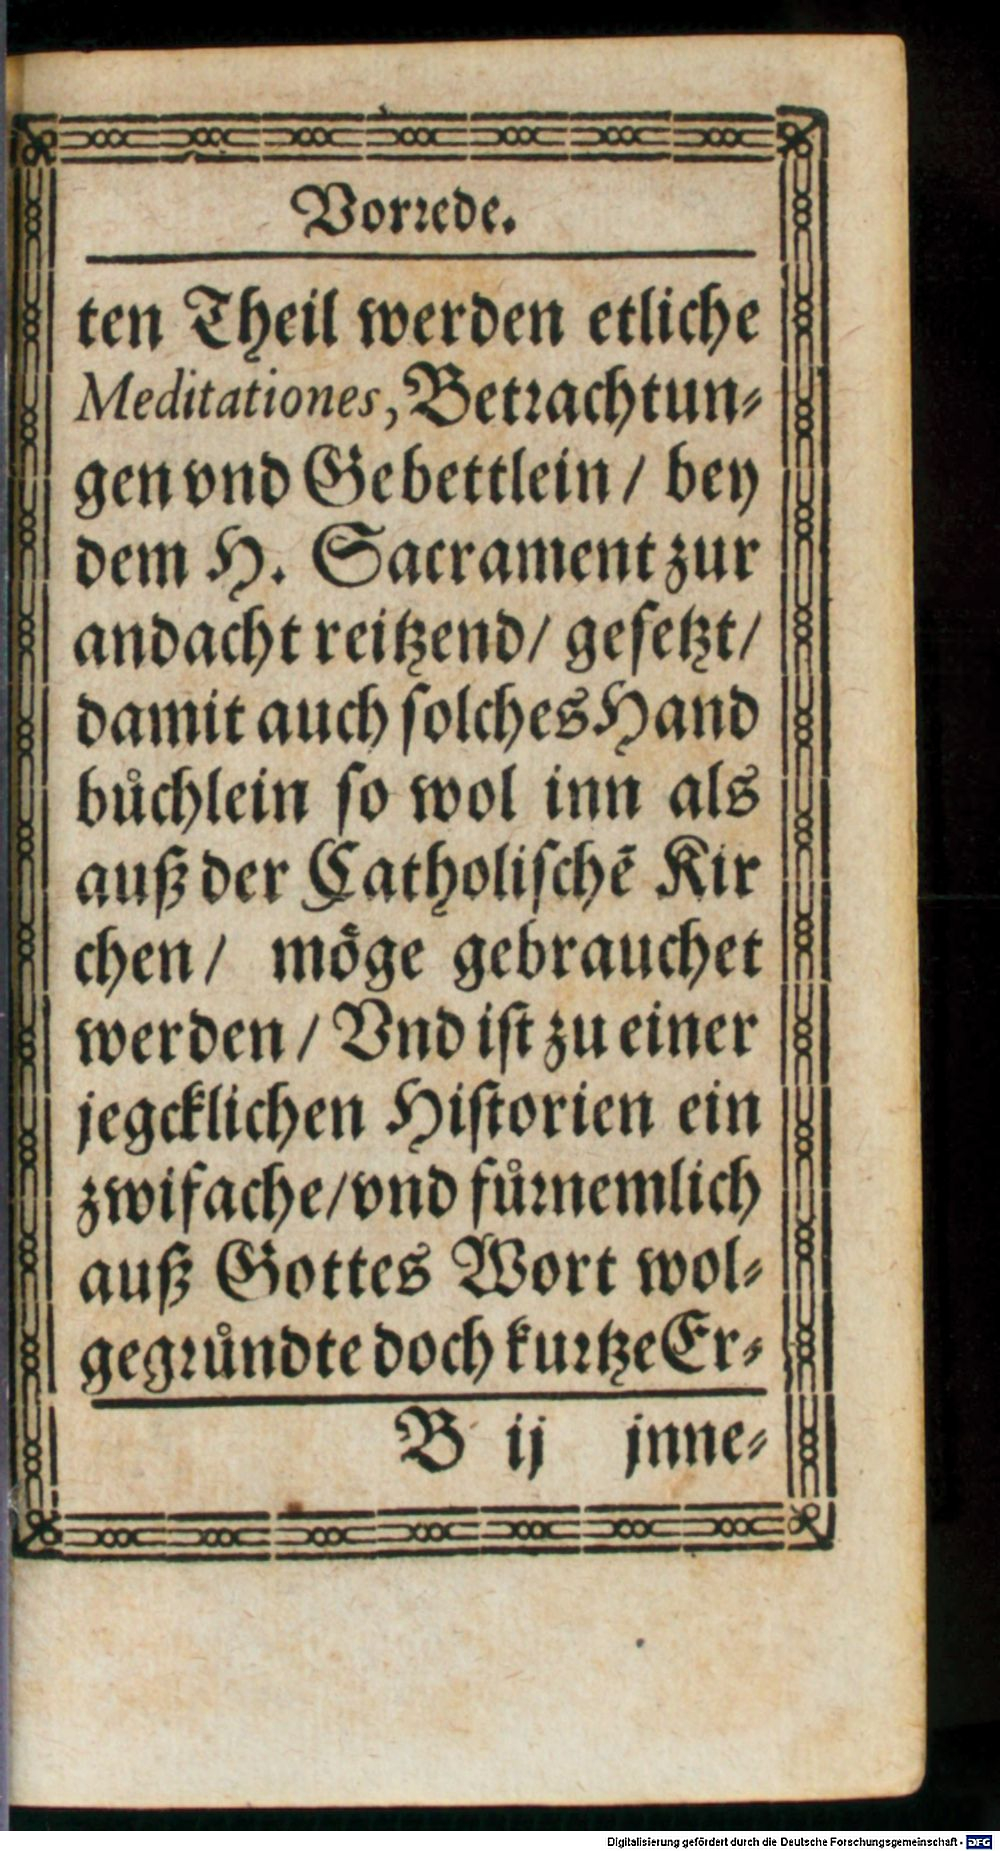 Vorꝛede.
ten Theil werden etliche
Meditationes, Betꝛachtun⸗
gen vnd Gebettlein / bey
dem H. Sacrament zur
andacht reitzend/ geſetzt/
damit auch ſolches Hand
buͤchlein ſo wol inn als
auß der Catholiſchē Kir
chen/ moͤge gebrauchet
werden / Vnd iſt zu einer
jegcklichen Hiſtorien ein
zwifache/vnd fuͤꝛnemlich
auß Gottes Wort wol⸗
gegꝛuͤndte doch kuꝛtze Er⸗
B ij jnne⸗
Digitalisierung gefördert durch die Deutsche Forschungsgemeinschaft - DFG